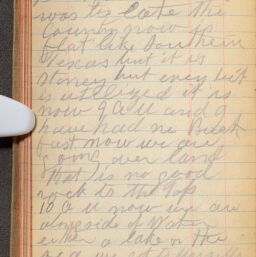 was to late the
Country now is
flat like Southern
Texas but it is
stoney but every bit
is utilized it is
now 9 A M and I
have had no Break
fast now we are
going over land
that is no good
rock to the top
10 A M now we are
alongside of Water
either a lake or the